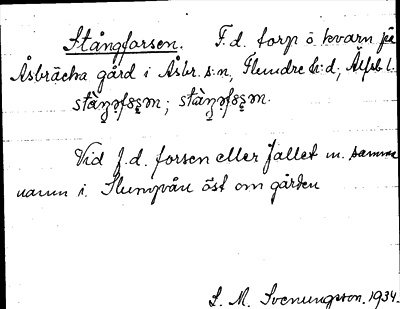 Stångforsen. F.d. torp o kvarn på
Åsbräcka gård i Åsbr. s:n, Flundre h:d, Älfsb l.
Vid f.d. forsen eller fallet m. samma
namn i Slumpån öst om gården
S. M. Svenungsson. 1934.